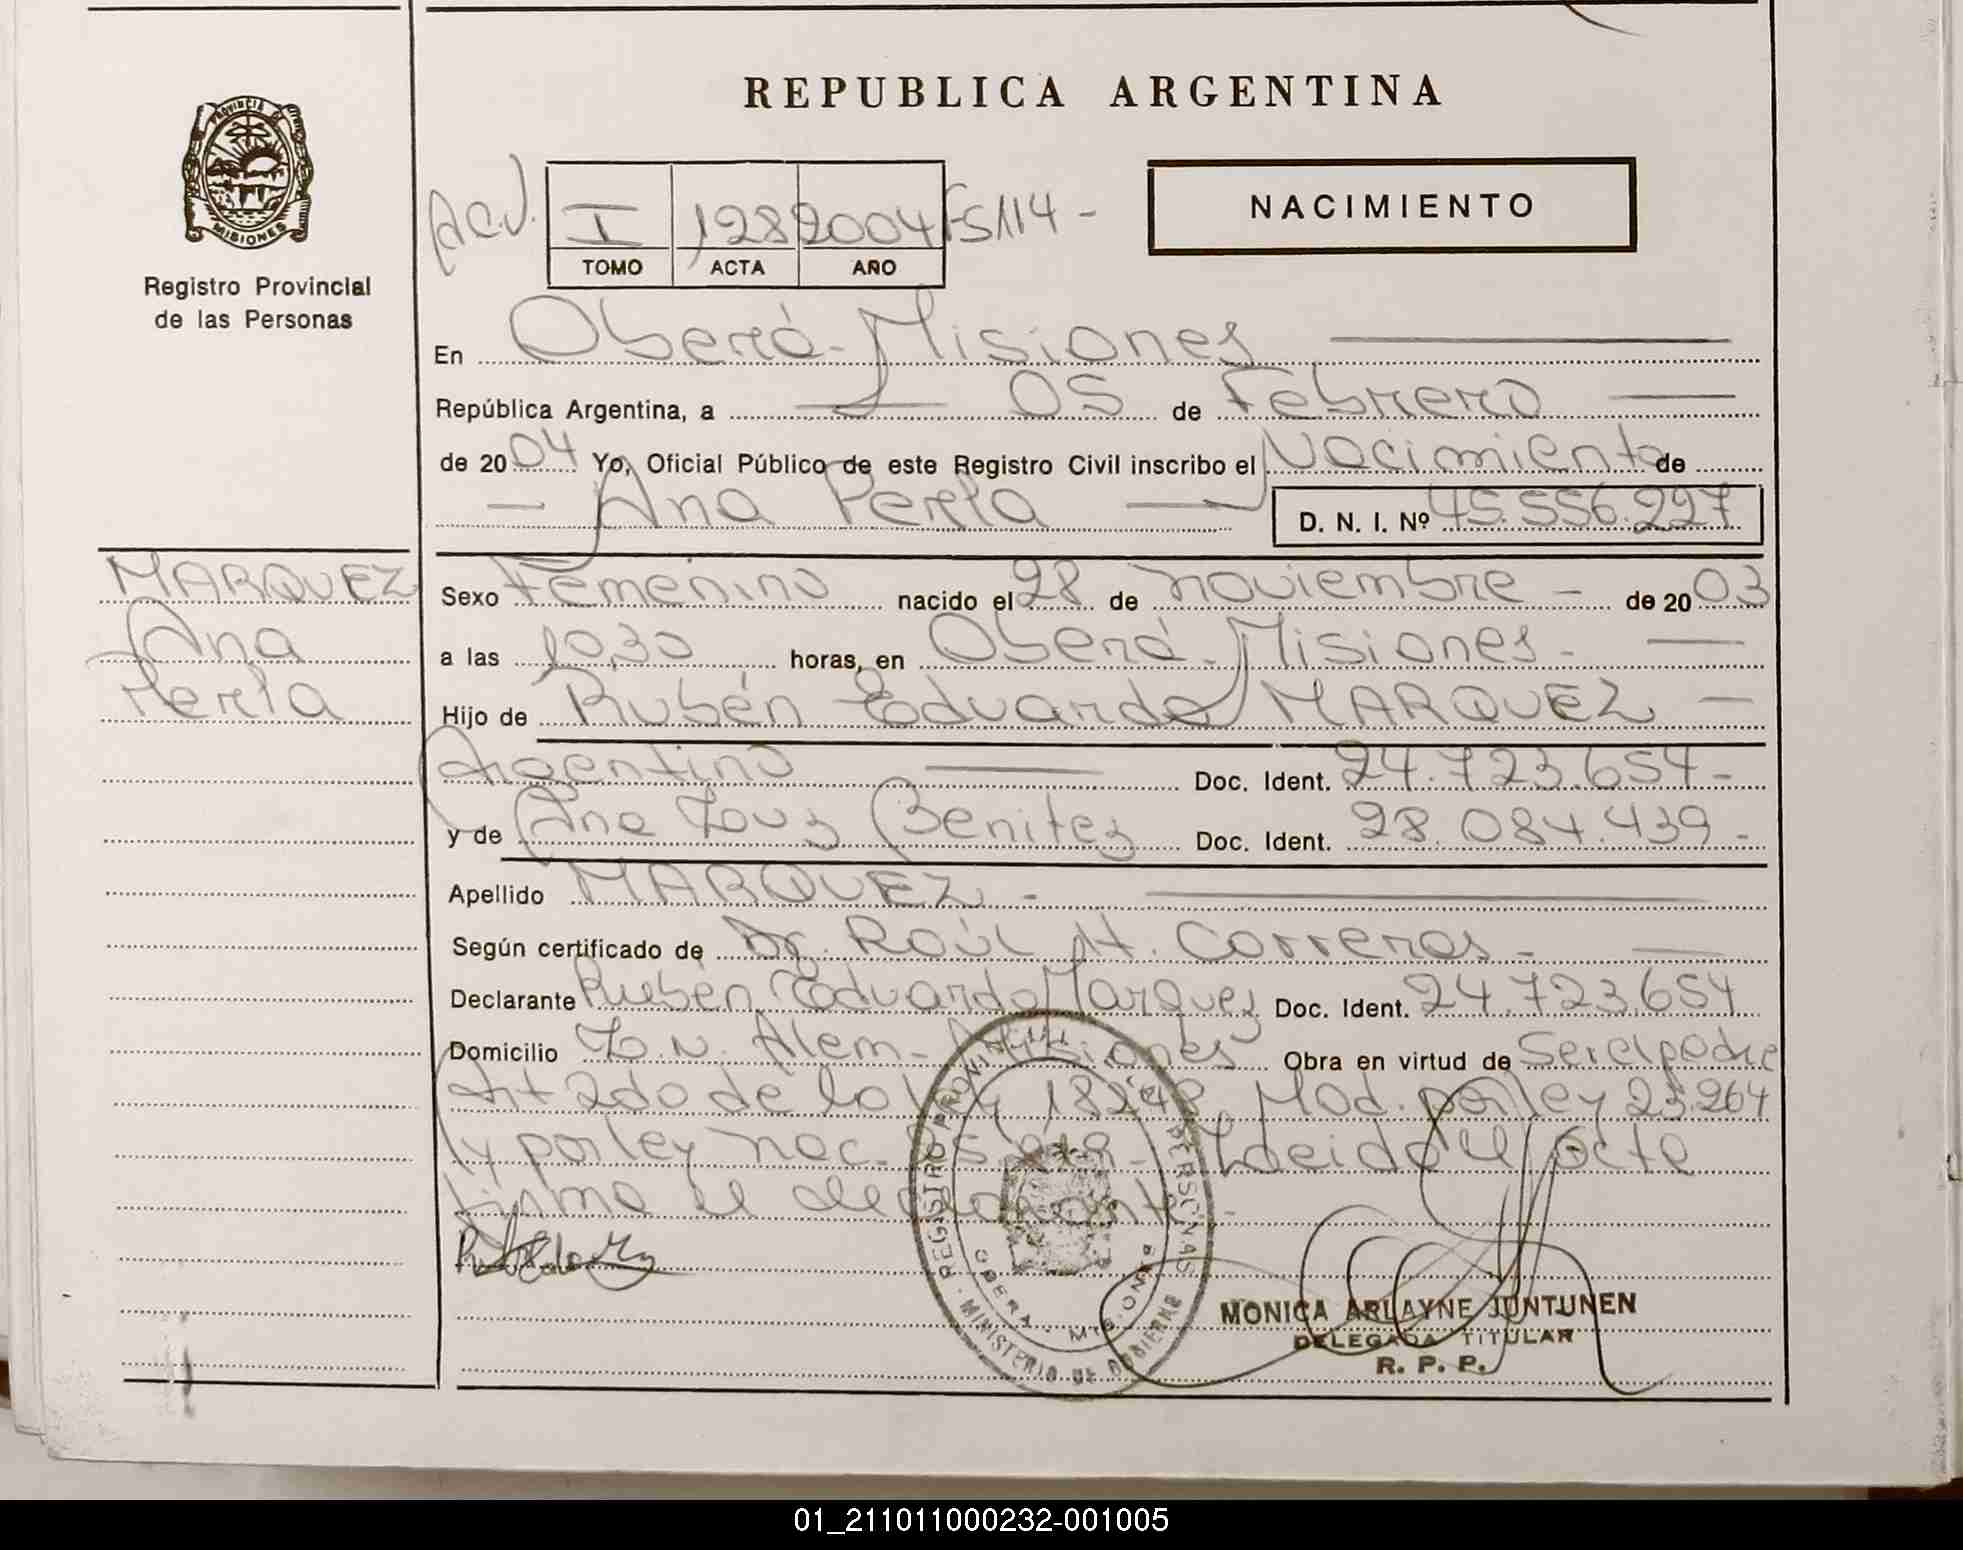 REPUBLICA ARGENTINA
PROVINCIA DE
MISIONES
Registro Provincial
de las Personas
NACIMIENTO
I 128 2004 Fs 114 -
TOMO ACTA AÑO
En Oberá - Misiones
República Argentina, a 05 de Febrero
de 2004 Yo, Oficial Público de este Registro Civil inscribo el Nacimiento de
Ana Perla D. N. I. Nº 45.556.227
MARQUEZ
Ana
Perla
Sexo Femenino nacido el 28 de noviembre - de 2003
a las 10,30 horas, en Oberá - Misiones -
Hijo de Rubén Eduardo MARQUEZ -
Argentino Doc. Ident. 24.723.654 -
y de Ana Luz Benitez Doc. Ident. 28.084.439 -
Apellido MARQUEZ -
Según certificado de Dr. Raúl H. Correras -
Declarante Rubén Eduardo Marquez Doc. Ident. 24.723.654
Domicilio L.N. Alem - Misiones Obra en virtud de Ser el padre
Art 2do de la ley 18248, Mod. por ley 23.264
y por ley nac. Leida el acta
firma el declarante -
REGISTRO PROVINCIAL DE LAS PERSONAS
OBERA - MISIONES
MINISTERIO DE GOBIERNO
MONICA ARLAYNE JUNTUNEN
DELEGADA TITULAR
R. P. P.
01_211011000232-001005